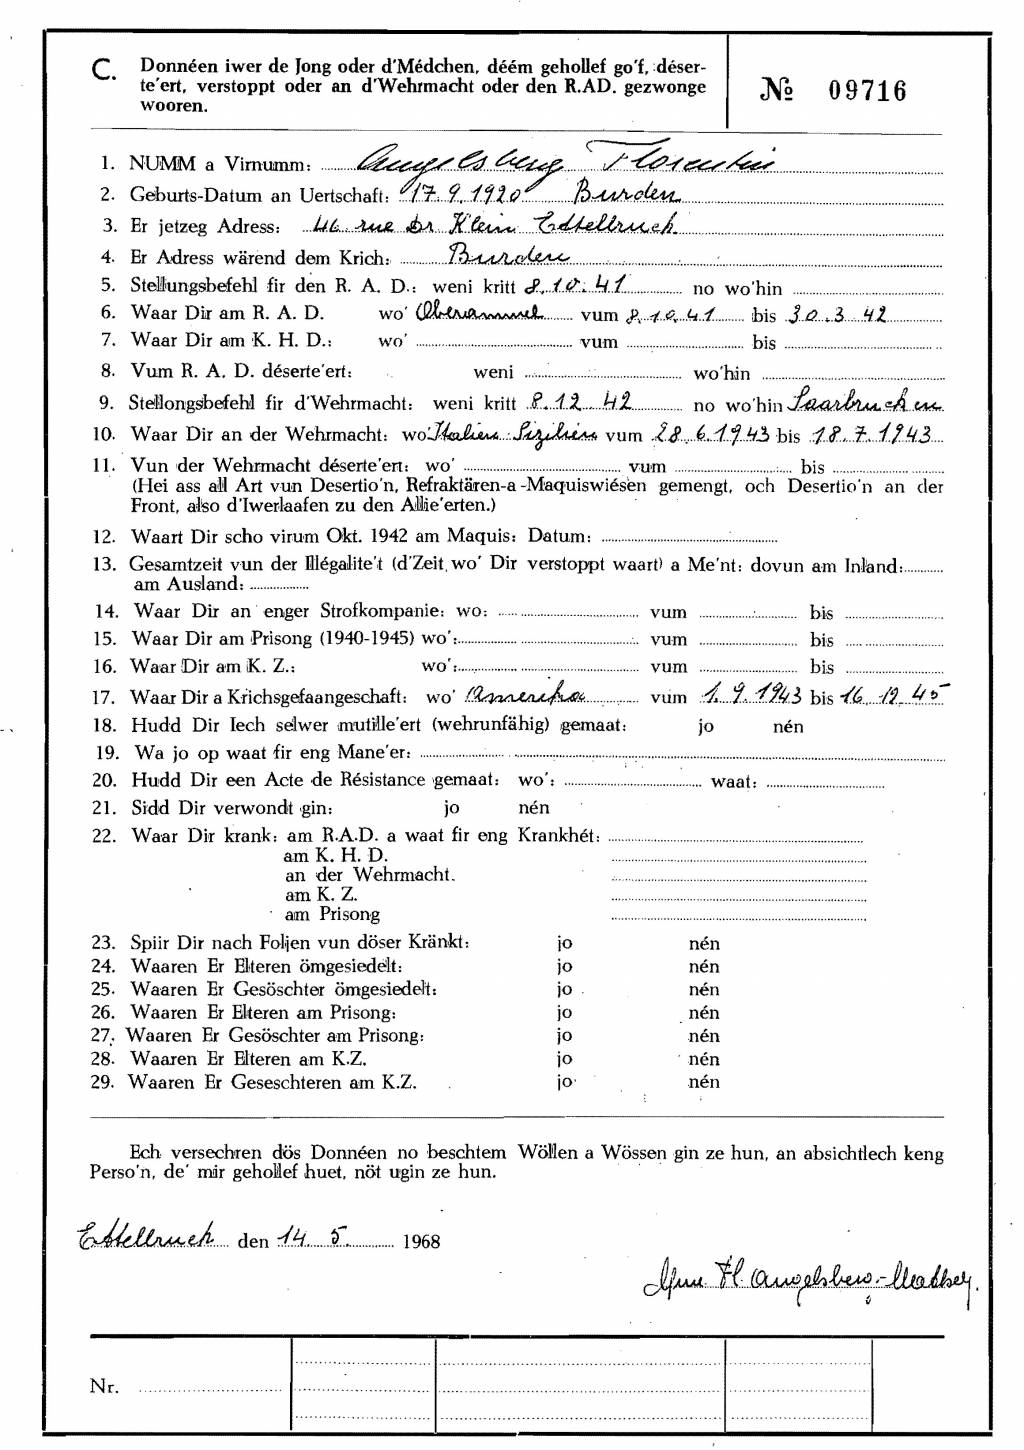 C. Donnéen iwer de Jong oder d'Médchen, déém gehollef go'f, déser-
te'ert, verstoppt oder an d'Wehrmacht oder den R.AD. gezwonge
wooren.
№ 09716
1. NUMM a Virnumm: Angelsberg Florentin
2. Geburts-Datum an Uertschaft: 17.9.1920 Burden
3. Er jetzeg Adress: 46 rue Dr Klein Ettelbruck
4. Er Adress wärend dem Krich: Burden
5. Stellungsbefehl fir den R. A. D.: weni kritt 8.10.41 no wo'hin
6. Waar Dir am R. A. D. wo' Oberammel vum 8.10.41 bis 30.3.42
7. Waar Dir am K. H. D.: wo' vum bis
8. Vum R. A. D. déserte'ert: weni wo'hin
9. Stellongsbefehl fir d'Wehrmacht: weni kritt 8.12.42 no wo'hin Saarbrucken
10. Waar Dir an der Wehrmacht: wo' Italien Sizilien vum 28.6.1943 bis 18.7.1943
11. Vun der Wehrmacht déserte'ert: wo' vum bis
(Hei ass all Art vun Desertio'n, Refraktären-a-Maquiswiésen gemengt, och Desertio'n an der
Front, also d'Iwerlaafen zu den Allie'erten.)
12. Waart Dir scho virum Okt. 1942 am Maquis: Datum:
13. Gesamtzeit vun der Illégalite't (d'Zeit, wo' Dir verstoppt waart) a Me'nt: dovun am Inland:
am Ausland:
14. Waar Dir an enger Strofkompanie: wo: vum bis
15. Waar Dir am Prisong (1940-1945) wo': vum bis
16. Waar Dir am K. Z.: wo': vum bis
17. Waar Dir a Krichsgefaangeschaft: wo' Amerika vum 1.9.1943 bis 16.12.45
18. Hudd Dir Iech selwer mutille'ert (wehrunfähig) gemaat: jo nén
19. Wa jo op waat fir eng Mane'er:
20. Hudd Dir een Acte de Résistance gemaat: wo': waat:
21. Sidd Dir verwondt gin: jo nén
22. Waar Dir krank: am R.A.D. a waat fir eng Krankhét:
am K. H. D.
an der Wehrmacht.
am K. Z.
am Prisong
23. Spiir Dir nach Foljen vun döser Kränkt: jo nén
24. Waaren Er Elteren ömgesiedelt: jo nén
25. Waaren Er Gesöschter ömgesiedelt: jo nén
26. Waaren Er Elteren am Prisong: jo nén
27. Waaren Er Gesöschter am Prisong: jo nén
28. Waaren Er Elteren am K.Z. jo nén
29. Waaren Er Geseschteren am K.Z. jo nén
Ech versechren dös Donnéen no beschtem Wöllen a Wössen gin ze hun, an absichtlech keng
Perso'n, de' mir gehollef huet, nöt ugin ze hun.
Ettelbruck den 14.5. 1968
Mme Fl. Angelsberg-
Nr.